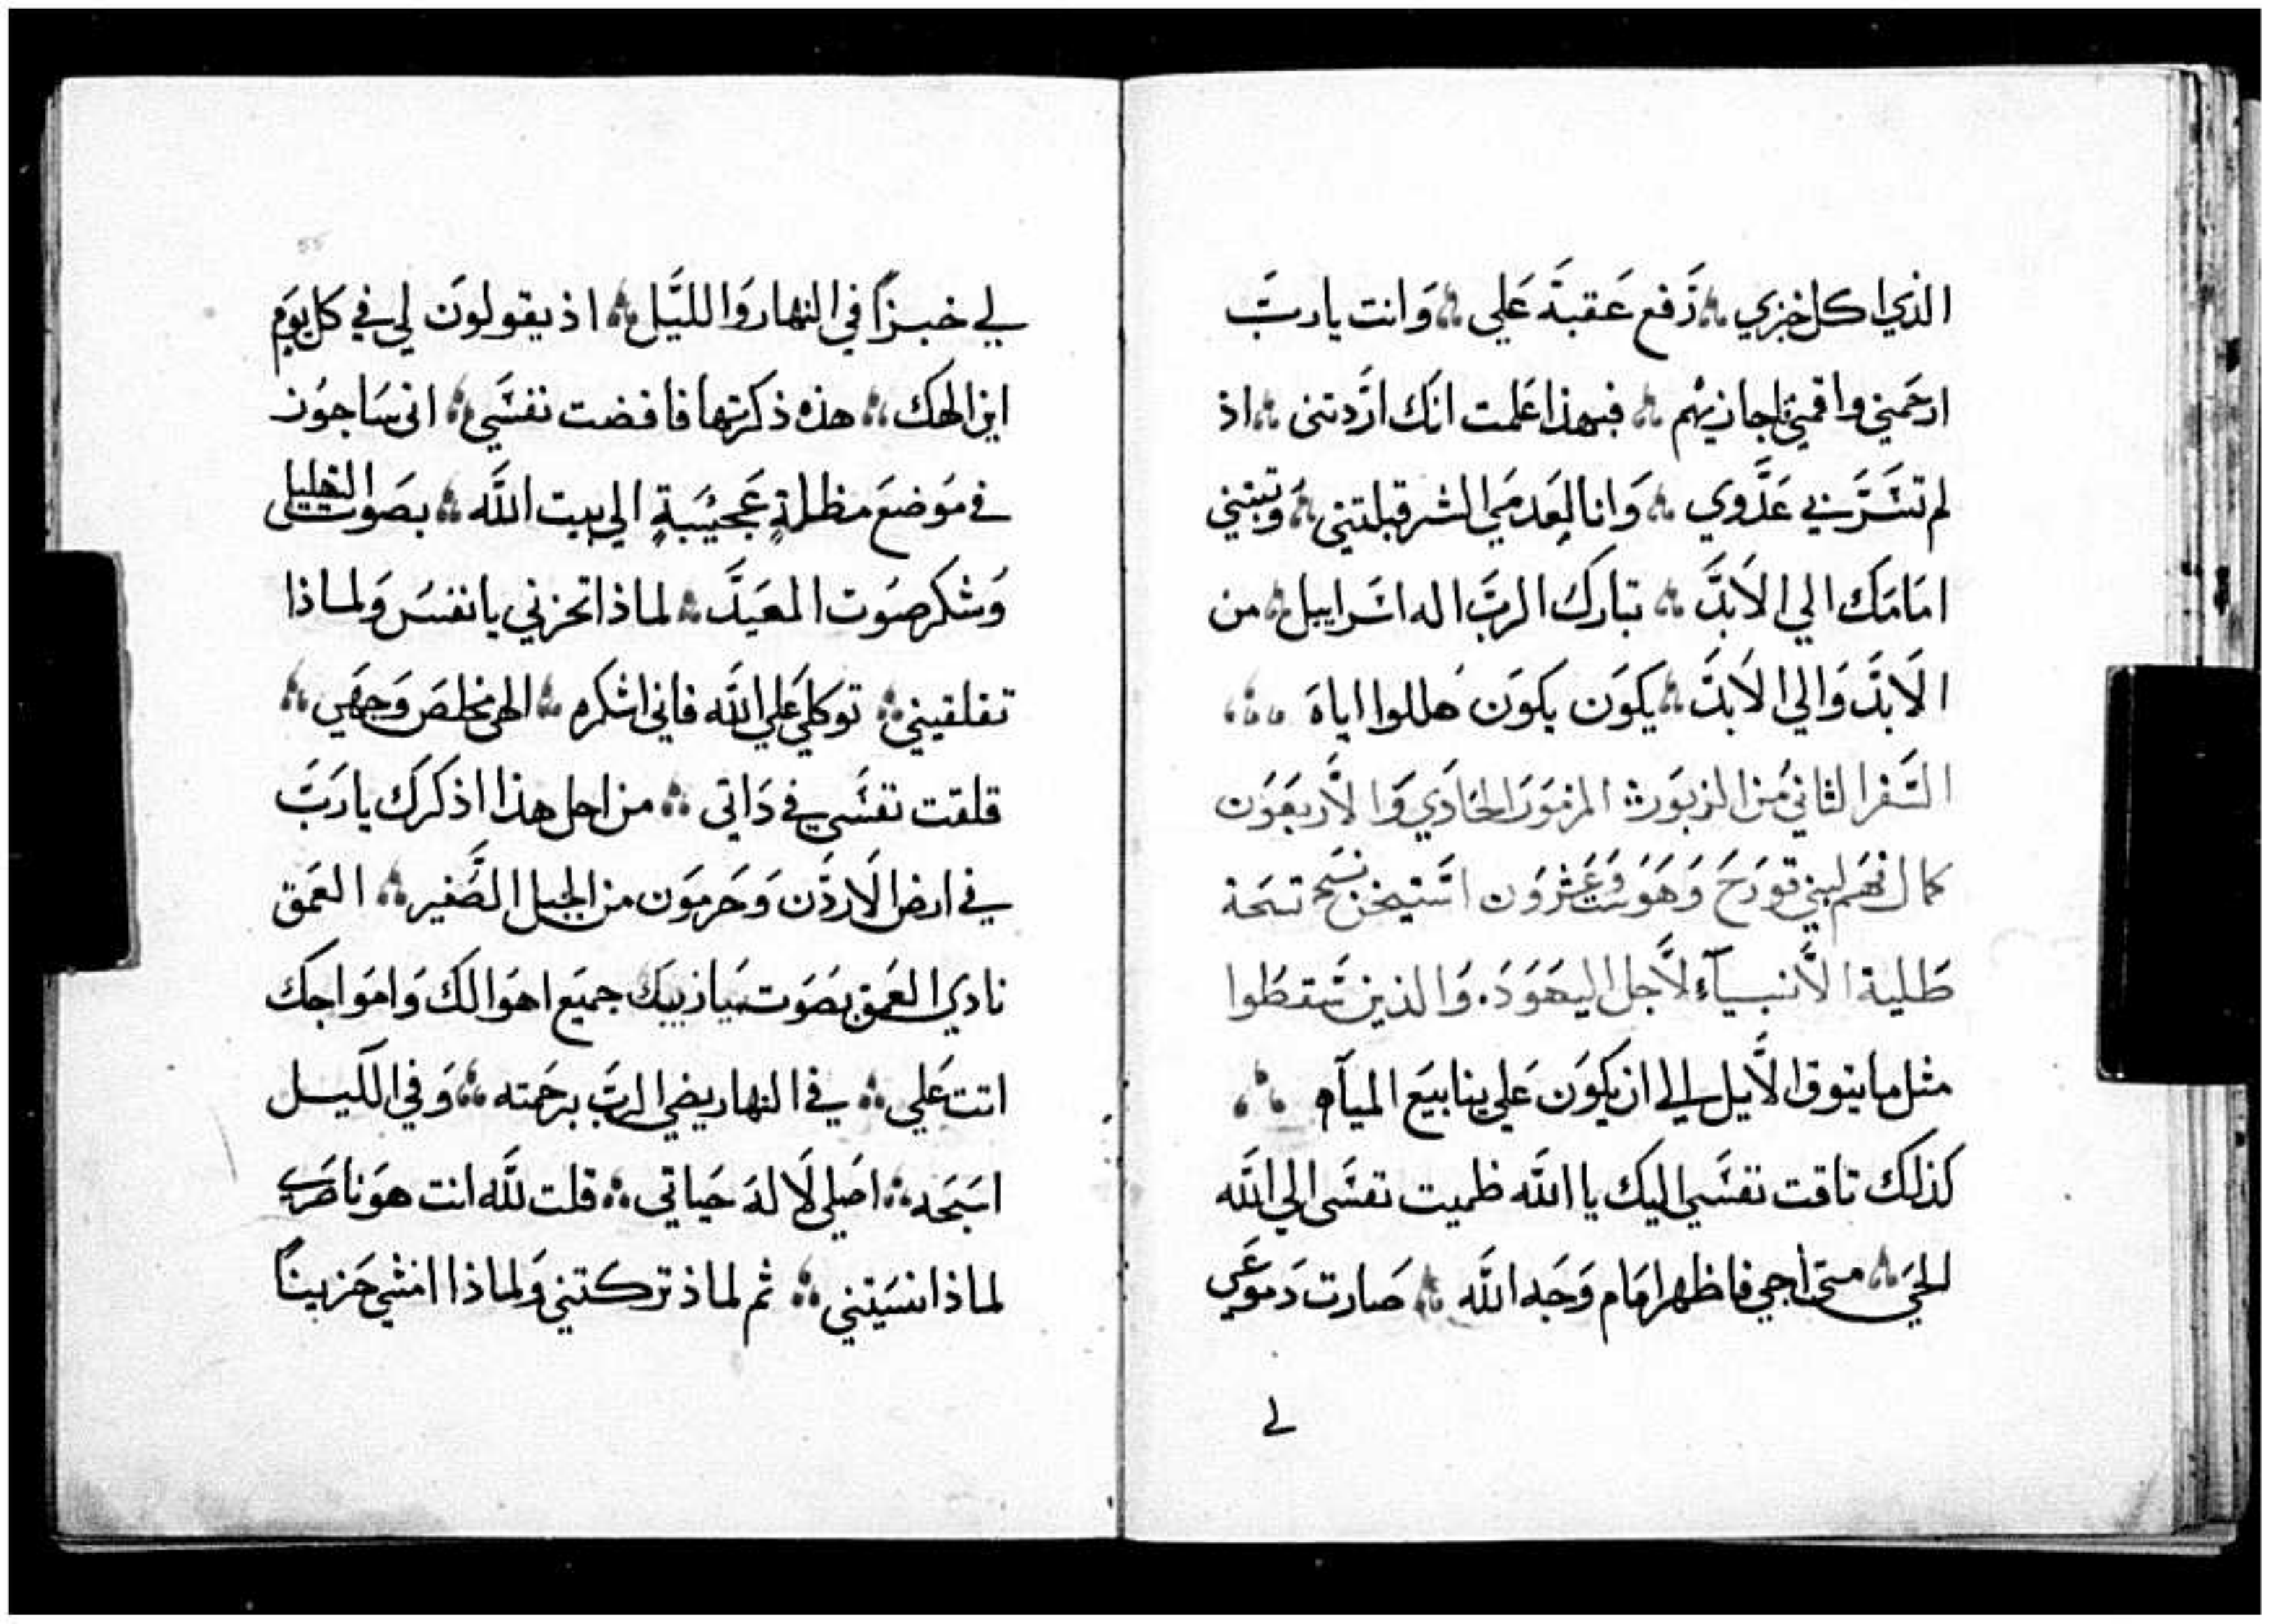 الذي اكل خبزي ۞ رَفع عَقبَه عَلي ۞ وَانت يارَبّ
ارحَمني واقمني اجازيهم ۞ فبهذا عَلمت انك ارَّدتني ۞ اذ
لم تسَر بي عَدُوي ۞ وَانا لعَدم الشر قبلتني ۞ وَثبتني
امَامَك الي الاَبدَّ ۞ تبارك الربَّ اله اسَراييل ۞ من
الاَبدَّ وَالي الاَبدَّ ۞ يكوَن يكوَن هَللوا اياهَ ۞
السَّفر الثاني مُن الزبوَر ۞ المزموَر الحَادَي وَالاَّربعَوَن
كمال فهَم لبني قورَح وَهَوَ
طَلبة الاَّنبيآء لاَّجل اليهَوَدَ. وَالذين سَّقطَوا
مثل ما يتوق الاَّيل الي ان يكوَن عَلي ينابيَع الميآه ۞
كذلك تاقت نفسَي اليك يا اللَّه ظميت نفسَي الي اللَّه
الحَي ۞ متي اجي فاظهر امَام وَجَه اللَّه ۞ صَارت دَموعَي
لي
لي خبزاً في النهار وَالليَّل ۞ اذ يقولوَن لي في كل يوَم
اين الهك ۞ هذه ذكرتها فافضت نفسَي ۞ اني سَاجوُز
في مَوضعَ مظلةٍ عَجيَبةٍ الي بيت اللَّه ۞ بصَوت التهليل
وَشكر صَوت المعَيدَّ ۞ لماذا تحزني يا نفسَ وَلماذا
تقلقيني ۞ توكلي عَلي اللَّه فاني اشكره ۞ الهي مخلصَ وَجهَي ۞
قلقت نفسَي في دَاتي ۞ من اجل هذا اذكرك يارَبَّ
في ارض الاَردَّن وَحَرموَن من الجبل الصَّغير ۞ العَمق
نادي العَمق بصَوَت ميازيبك جميَع اهَوالك وَامَواجك
اتت عَلي ۞ في النهار يضي الربَّ برحَمته ۞ وَفي الليل
اسَبَحَه ۞ اصَلي لاَ لهَ حَياتي ۞ قلت للَّه انت هوَ ناصَري
لماذا نسَيتني ۞ ثم لماذ تركتني وَلماذا امشي حَزيناً